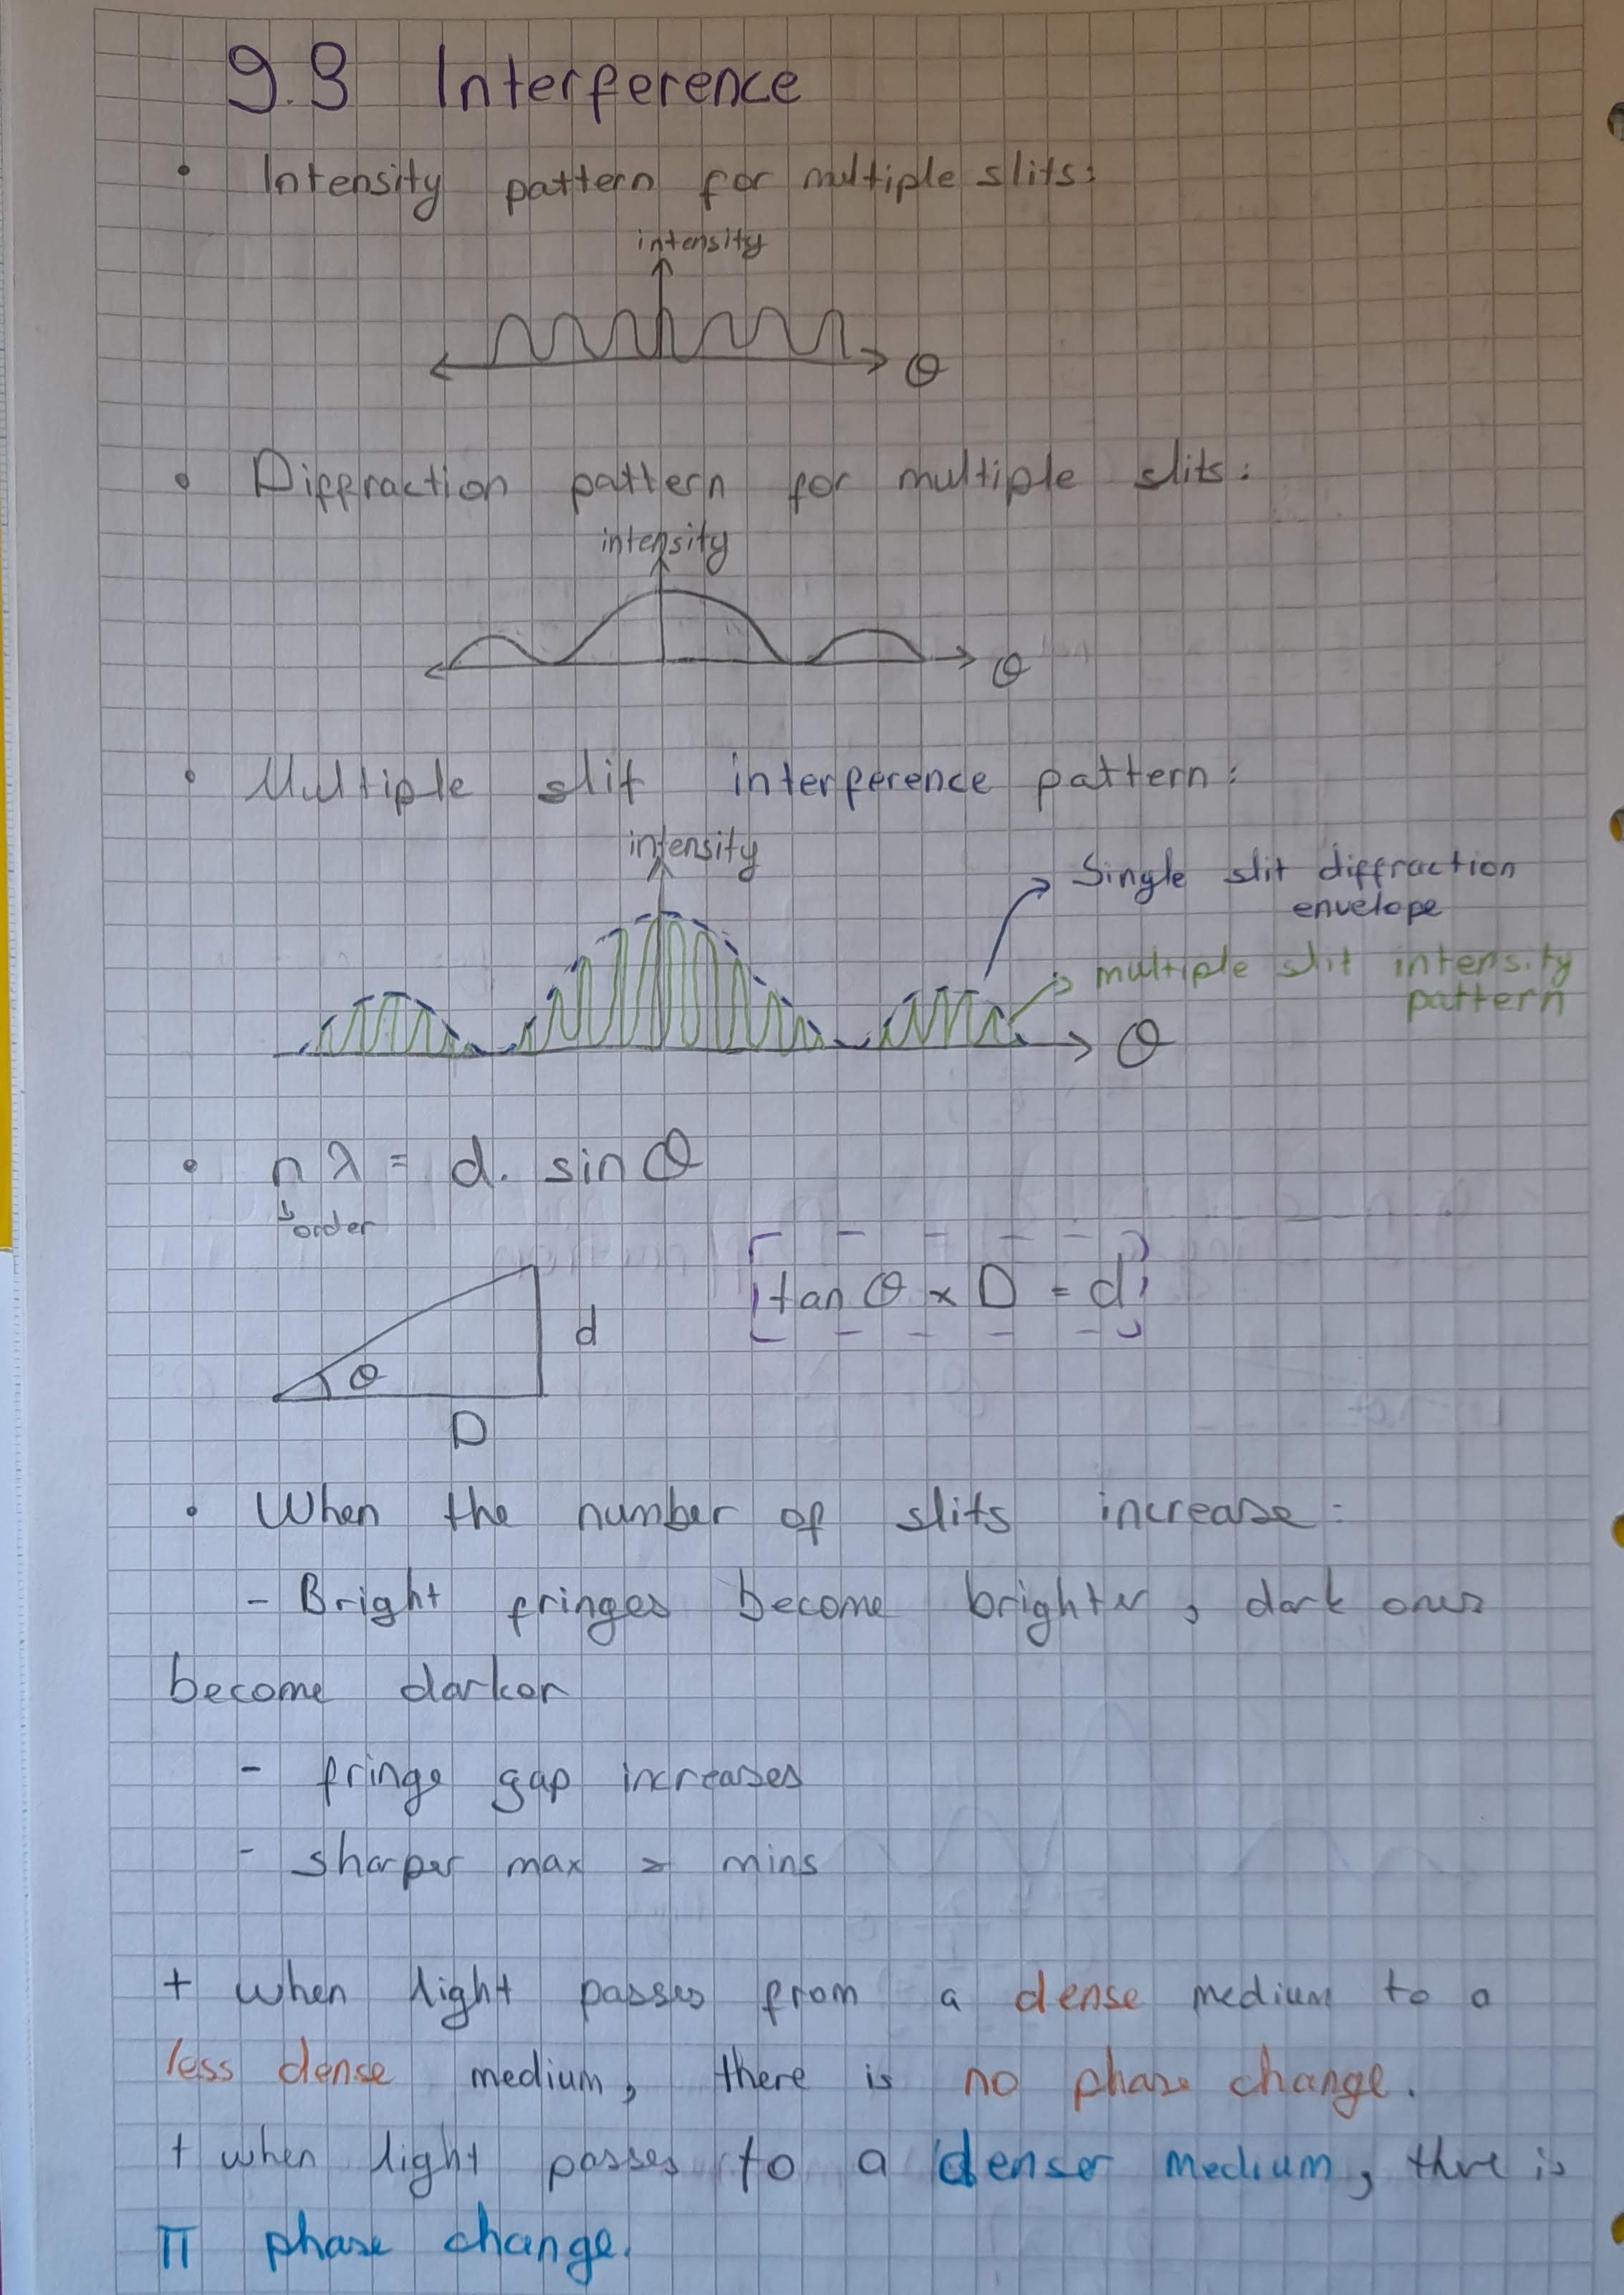 9.3 Interference
• Intensity pattern for multiple slits:
intensity
θ
• Diffraction pattern for multiple slits:
intensity
θ
• Multiple slit interference pattern:
intensity
Single slit diffraction
envelope
multiple slit intensity
pattern
θ
• nλ = d. sinθ
↳ order
tan θ × D = d
d
θ
D
• When the number of slits increase:
- Bright fringes become brighter, dark ones
become darker
- fringe gap increases
- sharper max & mins
+ when light passes from a dense medium to a
less dense medium, there is no phase change.
+ when light passes to a denser medium, there is
π phase change.